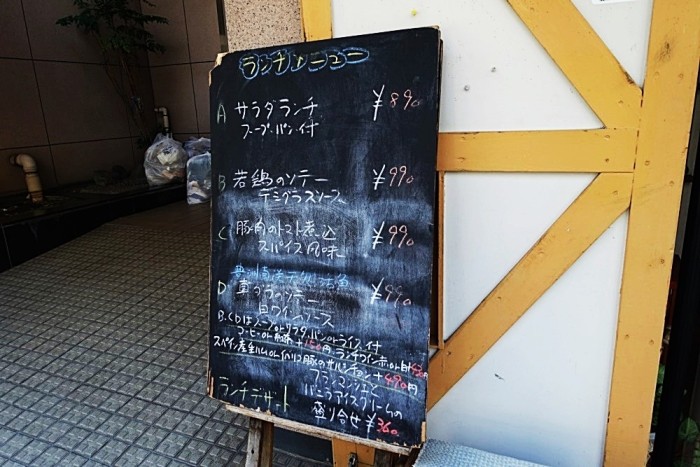 ランチメニュー
A サラダランチ ¥890
スープ・パン・付
B 若鶏のソテー ¥990
デミグラスソース
C 豚肉のトマト煮込 ¥990
スパイス風味
D 真ダラのソテー ¥990
白ワインソース
B.C.Dはスープorサラダ,パンorライス,付
コーヒーor紅茶+150円,ランチワイン赤or白
スペイン産生ハムorイベリコ豚のサルシチョン+490円
ランチデザート
ブランマンジェと
バニラアイスクリームの
盛り合せ¥360